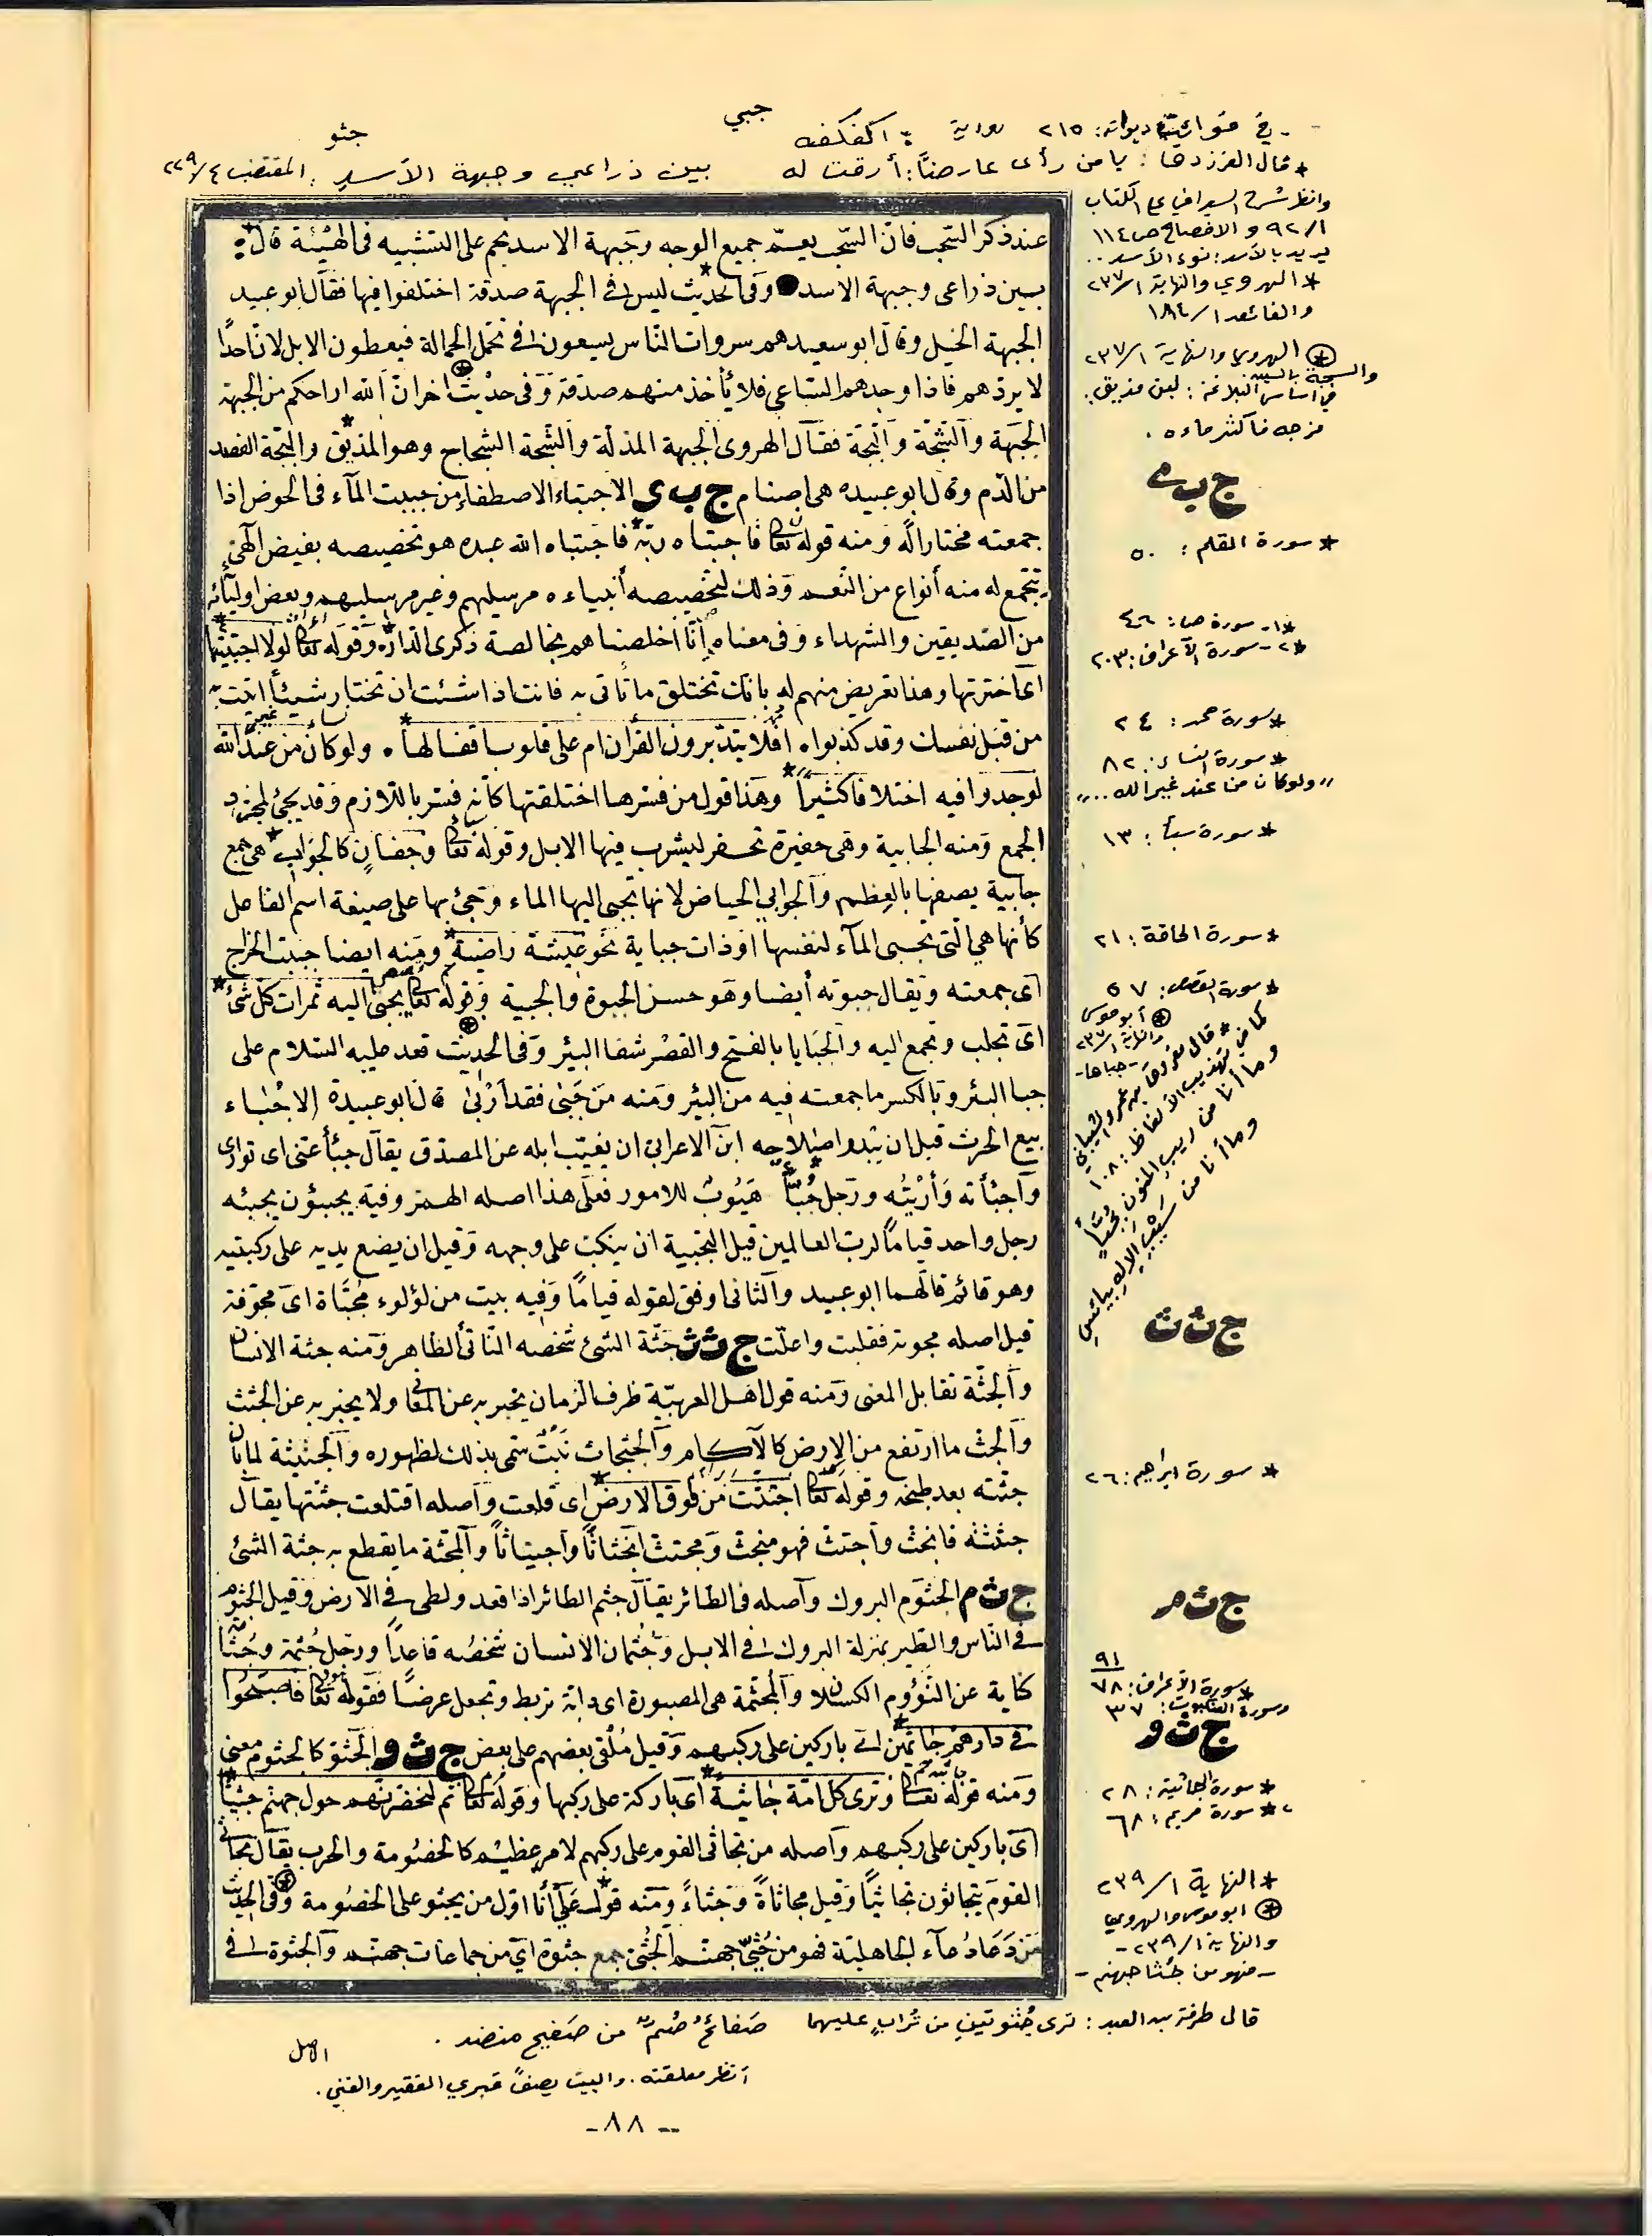 جبي
جثو
في ديوانه: ٢١٥ رواية : أكفكفه
* قال الفرزدق: يا من رأى عارضًا: أرقت له بين ذراعي وجبهة الأسد: المقتضب ٤/٢٢٩
عند ذكر السّحب فانّ السّحب يعمّ جميع الوجه وجبهة الاسد نجم على التشبيه فى الهيئة قال:
بين ذراعى وجبهة الاسد وفى الحديث ليس فى الجبهة صدقة اختلفوا فيها فقال ابو عبيد
الجبهة الخيل وقال ابو سعيد هم سروات النّاس يسعون فى تحمّل الحمالة فيعطون الابل لانّ احدًا
لا يردّهم فاذا وجدهم السّاعى فلا يأخذ منهم صدقة وفى حديث اخر انّ الله اراحكم من الجبهة
الجبهة والسّجّة والبجّة فقال الهروى الجبهة المذلّة والسّجّة السجاج وهو المذيق والبجّة الفصد
من الدّم وقال ابو عبيده هى اصنام ج ب ى الاجتباء الاصطفاء من جبيت المآء فى الحوض اذا
جمعته مختارا له ومنه قوله تعالى فاجتباه ربّه فاجتباه الله عبده هو تخصيصه بفيض الهىّ
يتجمع له منه أنواع من النّعم وذلك لتخصيصه أنبياءه مرسليهم وغير مرسليهم وبعض اوليآئه
من الصّديقين والشهداء وفى معناه إنّا أخلصناهم بخالصة ذكرى الدّار وقوله تعالى لولا اجتبيتها
اى اخترتها وهذا تعريض منهم له بانك تختلق ما تأتى به فانت اذا شئت ان تختار شيئًا اتيت به
من قبل نفسك وقد كذبوا أفلا يتدبّرون القرآن ام على قلوب اقفالها ولو كان من عند الله
لوجدوا فيه اختلافا كثيرًا وهذا قول من فسّرها اختلقتها كأنه فسّر باللازم وقد يجئ لمجرّد
الجمع ومنه الجابية وهى حفيرة تحفر ليشرب فيها الابل وقوله تعالى وجفان كالجواب هى جمع
جابية يصفها بالعظم والجوابى الحياض لانها تجبى اليها الماء وجئ بها على صيغة اسم الفاعل
كأنها هى الّتى تجبى المآء لنفسها او ذات جباية نحو عيشة راضية ومنه ايضا جبيت الخراج
اى جمعته ويقال جبوته أيضا وهو حسن الجبوة والجبية وقوله تعالى يجبى اليه ثمرات كل شئ
اى تجلب وتجمع اليه والجبايا بالفتح والقصر شفا البئر وفى الحديث قعد عليه السّلام على
جبا البئر وبالكسر ما جمعته فيه من البئر ومنه من جبى فقد أربى قال ابو عبيدة الاجباء
بيع الحرث قبل ان يبدو صلاحه ابن الاعرابى ان يغيّب ابله عن المصدّق يقال جبأ عنّى اى توارى
واجبأته وأربيته ورجل جبّأ هيوب للامور فعلى هذا اصله الهمز وفيه يجبّؤن تجبئة
رجل واحد قيامًا لربّ العالمين قيل التجبية ان ينكبّ على وجهه وقيل ان يضع يديه على ركبتيه
وهو قائم قالهما ابو عبيد والثانى اوفق لقوله قيامًا وفيه بيت من لؤلوء مجبّاة اى مجوّفة
قيل اصله مجوبة فقلبت واعلّت ج ث ث جثّة الشئ شخصه النّاتئ الظاهر ومنه جثة الانسان
والجثّة تقابل المعنى ومنه قول اهل العربيّة ظرف الزمان يخبر به عن المعانى ولا يخبر به عن الجثث
والجثّ ما ارتفع من الارض كالآكام والجثجاث نبت سمّى بذلك لظهوره والجثيثة لما بان
جثته بعد طبخه وقوله تعالى اجتثّت من فوق الارض اى قلعت واصله اقتلعت جثّتها يقال
جثثته فانجثّ واجتثّ فهو منجثّ ومجتثّ انجثاثًا واجتثاثًا والمجثّة ما يقطع به جثة الشئ
ج ث م الجثوم البروك وأصله فى الطّائر يقال جثم الطائر اذا قعد ولطى فى الارض وقيل الجثوم
فى النّاس والطّير بمنزلة البروك فى الابل وجثمان الانسان شخصه قاعدًا ورجل جثمة وجثّامة
كناية عن النّؤوم الكسلان والمجثّمة هى المصبورة اى دابّة تربط وتجعل عرضًا فقوله تعالى فأصبحوا
فى دارهم جاثمين اى باركين على ركبهم وقيل ملقى بعضهم على بعض ج ث و الجثوّ كالجثوم معنى
ومنه قوله تعالى وترى كل امّة جاثية اى باركة على ركبها وقوله تعالى ثم لنحضرنّهم حول جهنّم جثيًّا
اى باركين على ركبهم واصله من تجاثى القوم على ركبهم لامر عظيم كالخصومة والحرب يقال تجاثى
القوم يتجاثون تجاثيًا وقيل مجاثاة وجثاءً ومنه قول علىّ أنا اول من يجثو على الخصومة وفى الحديث
من دعا دعآء الجاهليّة فهو من جثىّ جهنّم الجثى جمع جثوة اى من جماعات جهنّم والجثوة فى
وانظر شرح السيرافي على الكتاب
٩٢/١ و الافصاح ص ١١٤
يريد بالأسد: نوء الأسد..
* الهروي والنهاية ٢٣٧/١
والفائق ١٨٤/١
* الهروي والنهاية ٢٣٧/١
والسجة بالسين
في أساس البلاغة: لبن مذيق:
مزجه فأكثر ماءه.
ج ب ي
* سورة القلم: ٥٠
*١- سورة ص: ٤٦
*٢- سورة الأعراف: ٢٠٣
* سورة محمد: ٢٤
* سورة النساء: ٨٢
"ولو كان من عند غير الله..."
* سورة سبأ: ١٣
* سورة الحاقة: ٢١
* سورة القصص: ٥٧
* أبو موسى
والنهاية ٢٣٧/١
-جباها-
كما في تهذيب الألفاظ: ١٠٨
وما أنا من ريب المنون بجبأ
وما أنا من سيب الإله بيائس
ج ث ث
* سورة ابراهيم: ٢٦
ج ث م
٩١
* سورة الأعراف: ٧٨
وسورة العنكبوت: ٣٧
ج ث و
* سورة الجاثية: ٢٨
* سورة مريم: ٦٨
* النهاية ٢٣٩/١
* ابو موسى والهروي
والنهاية ٢٣٩/١-
-فهو من جثا جهنم-
قال طرفة بن العبد: ترى جُثوتين من تُرابٍ عليهما صفائحُ صُمٌّ من صفيح منضد.
انظر معلقته. والبيت يصف قبري الفقير والغني.
الاصل
-٨٨-